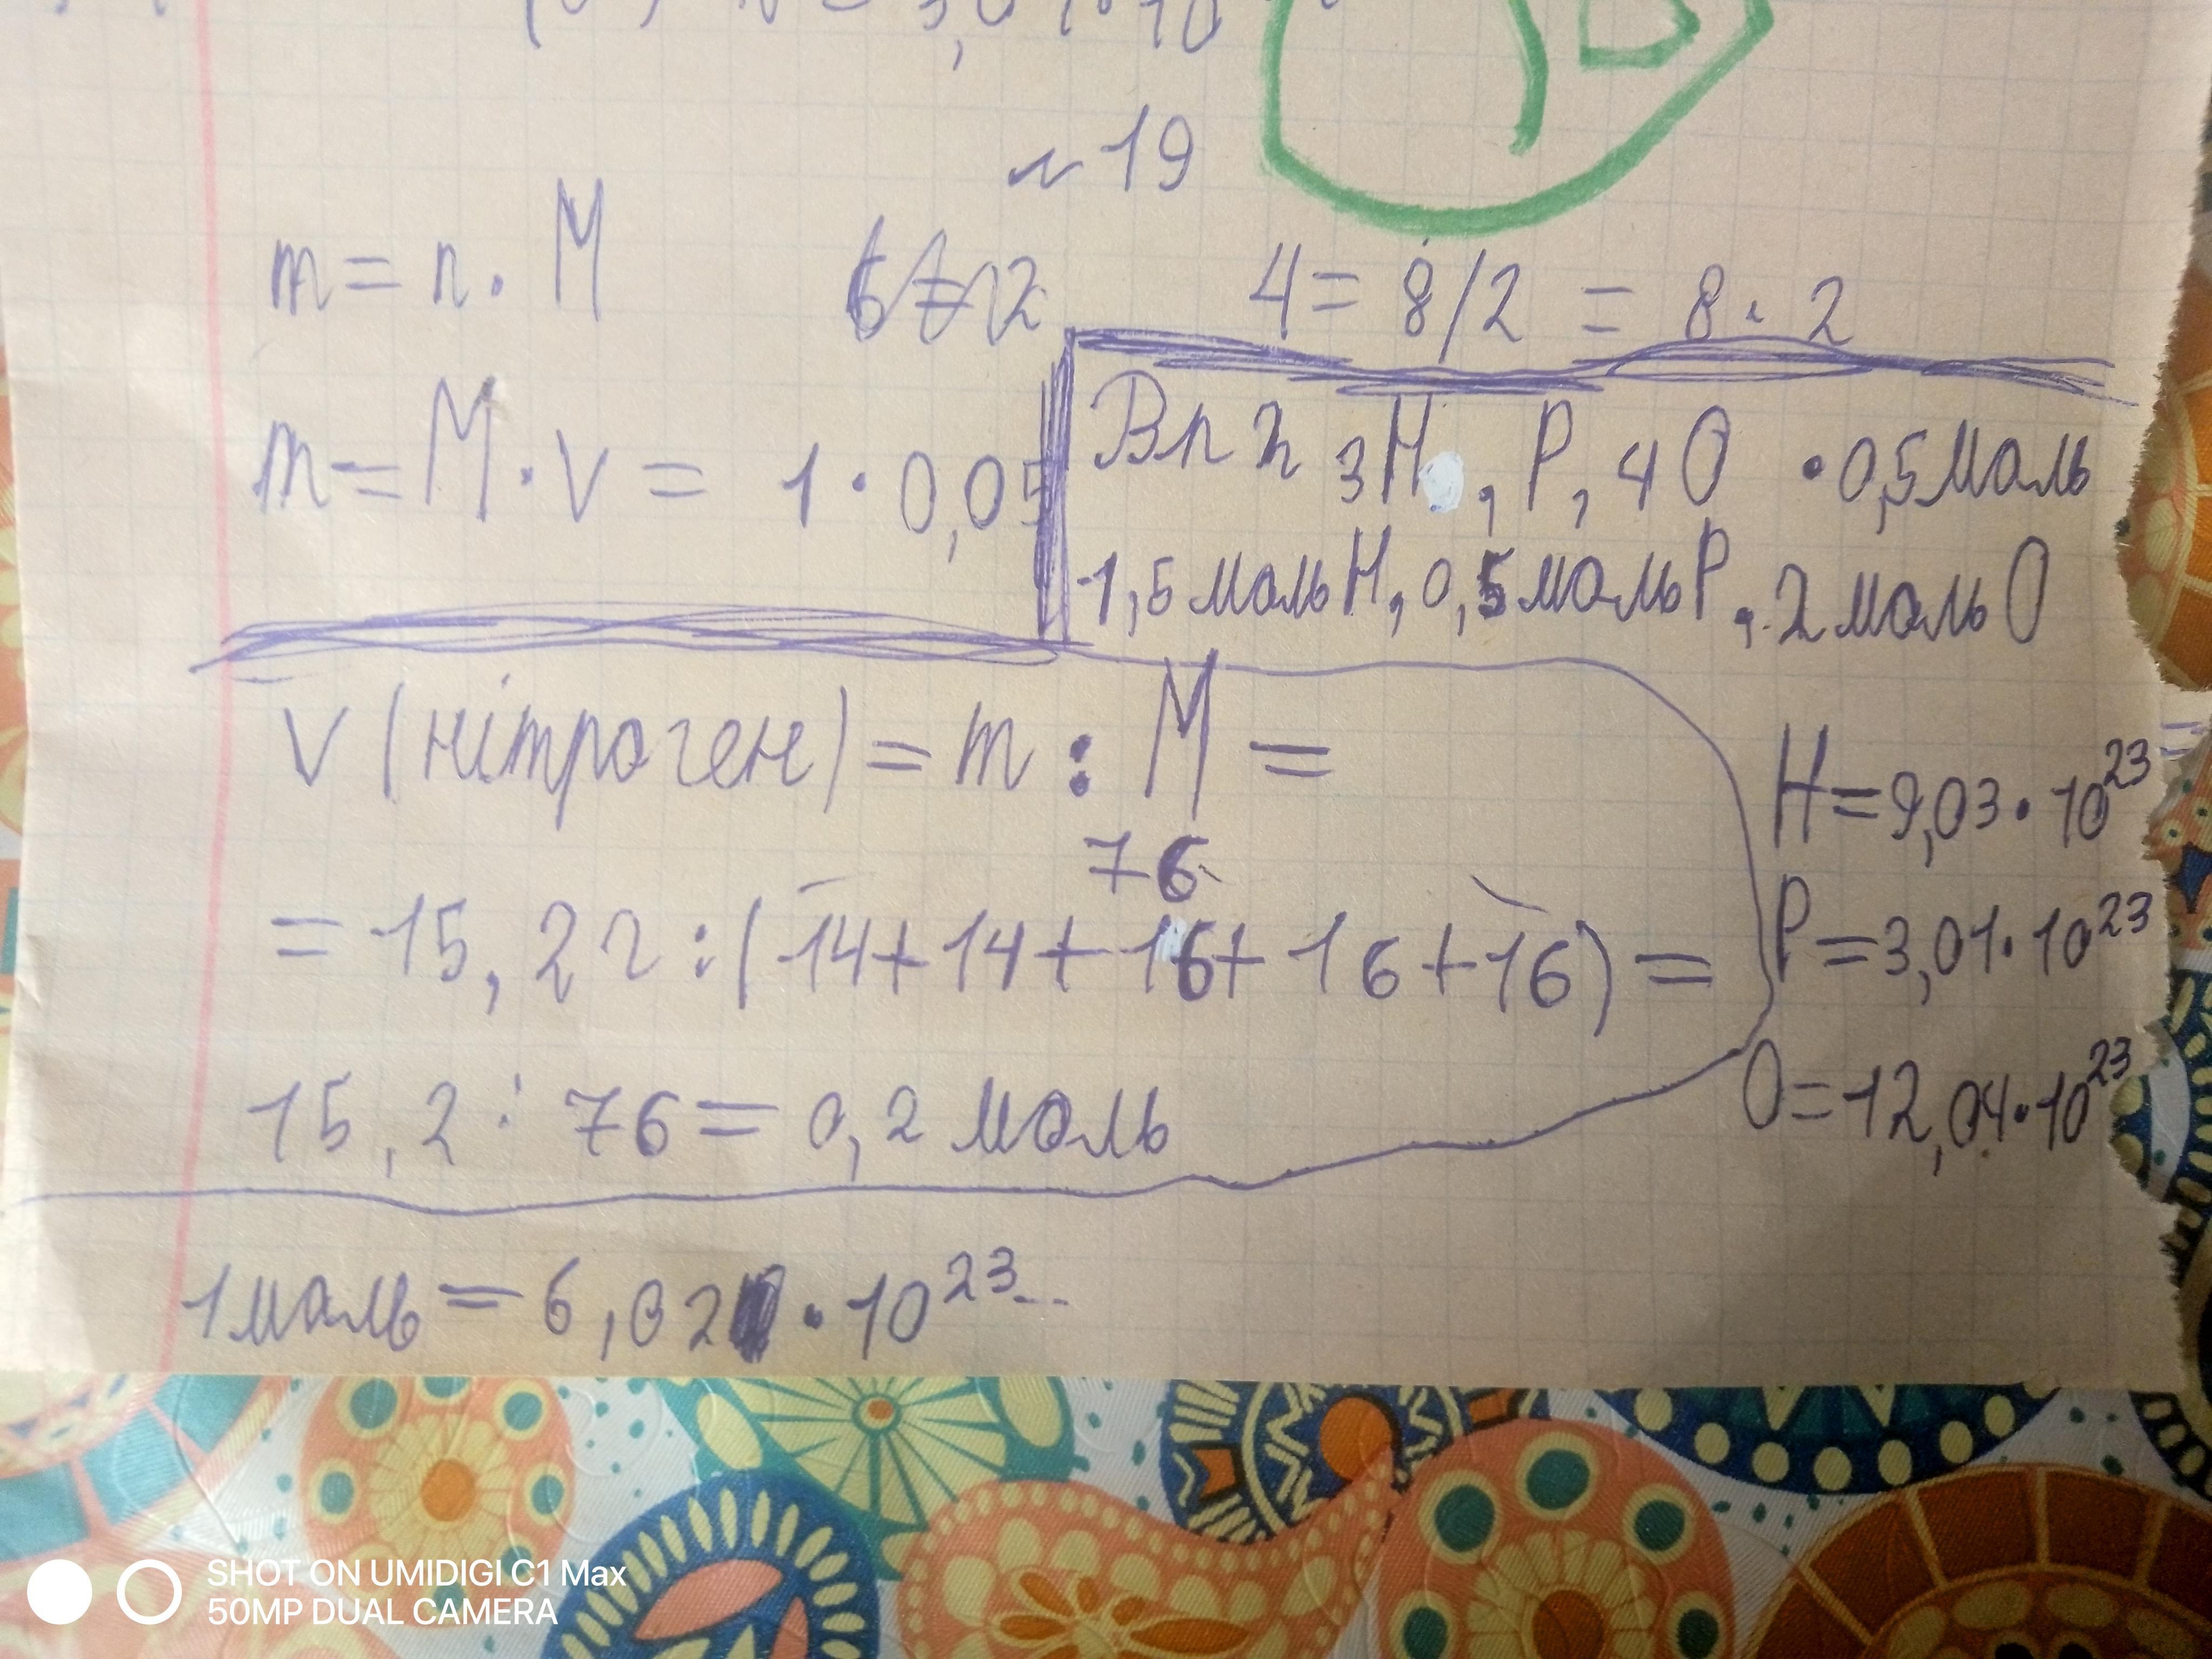 № 19
m = n · M
4 = 8/2 = 8 · 2
m = M · V = 1 · 0,05
Вπ 2 3H, P, 4O · 0,5 маль
1,5 маль H, 0,5 маль P, 2 маль O
V (нітроген) = m : M =
76
= 15,2г : (14+14+16+16+16) =
15,2 : 76 = 0,2 маль
H = 9,03 · 10²³
P = 3,01 · 10²³
O = 12,04 · 10²³
1 маль = 6,02 · 10²³
SHOT ON UMIDIGI C1 Max
50MP DUAL CAMERA